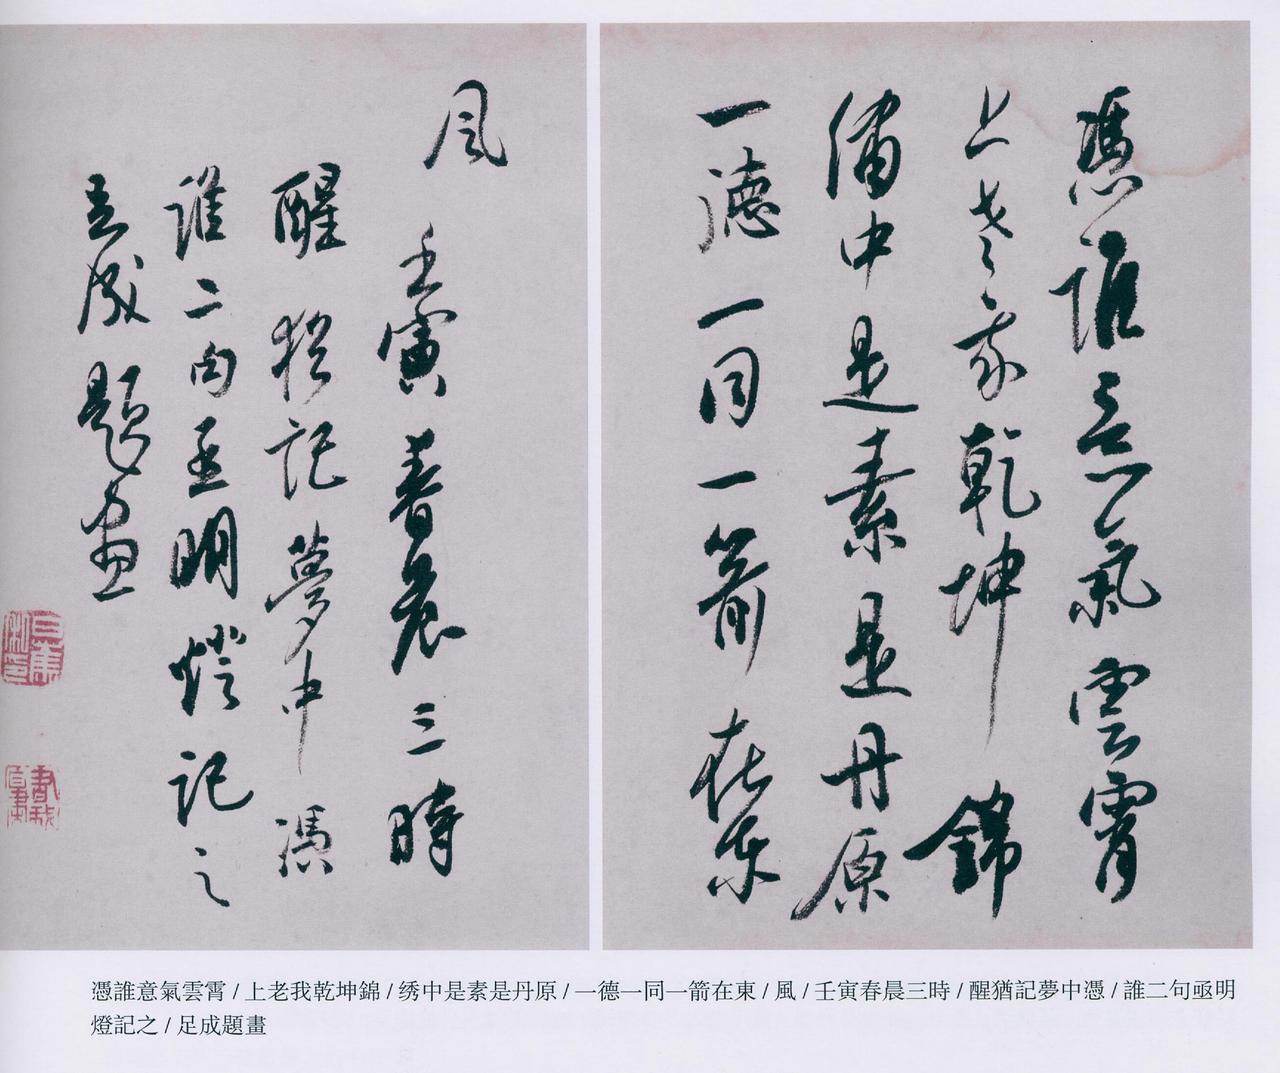 憑誰意氣雲霄
上老我乾坤錦
繡中是素是丹原
一德一同一箭在東
風
壬寅春晨三時
醒猶記夢中憑
誰二句亟明燈記之
足成題畫
憑誰意氣雲霄 / 上老我乾坤錦 / 绣中是素是丹原 / 一德一同一箭在東 / 風 / 壬寅春晨三時 / 醒猶記夢中憑 / 誰二句亟明
燈記之 / 足成題畫